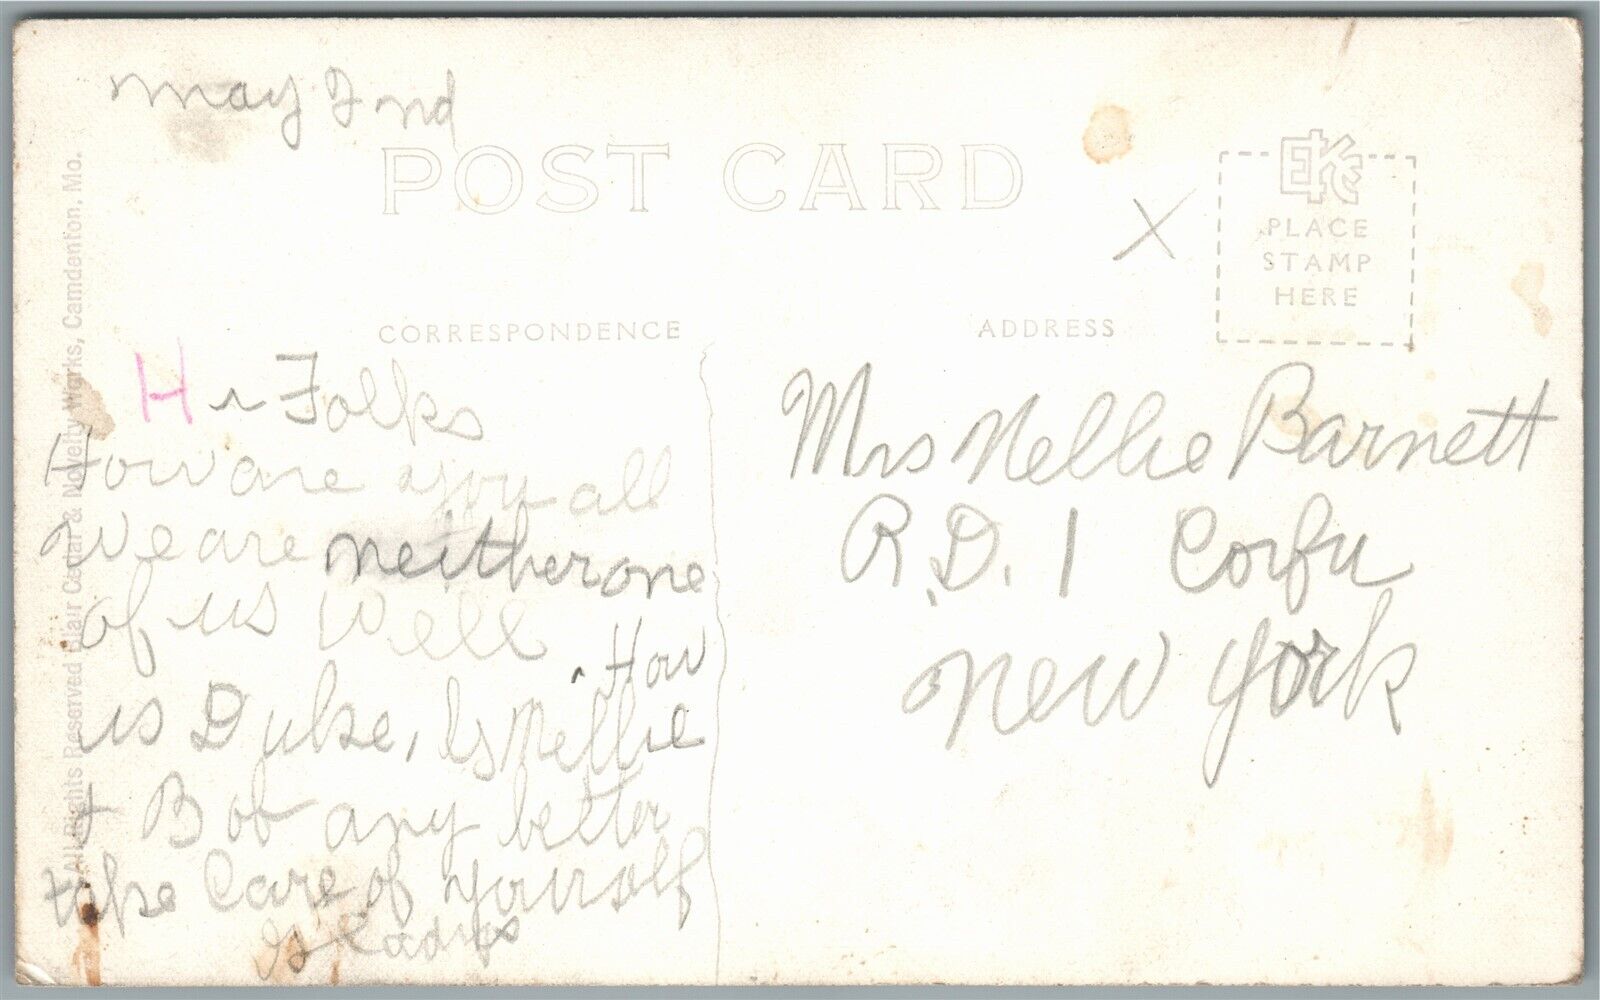 May 2nd
POST CARD
EKC
PLACE
STAMP
HERE
X
CORRESPONDENCE
ADDRESS
Hi Folks
How are you all
We are neither one
of us well
. How
is Duke, Is Nellie
+ Bob any better
take Care of yourself
Mrs Nellie Barnett
R.D. 1 Corfu
New York
All Rights Reserved Blair Cedar & Novelty Works, Camdenton, Mo.